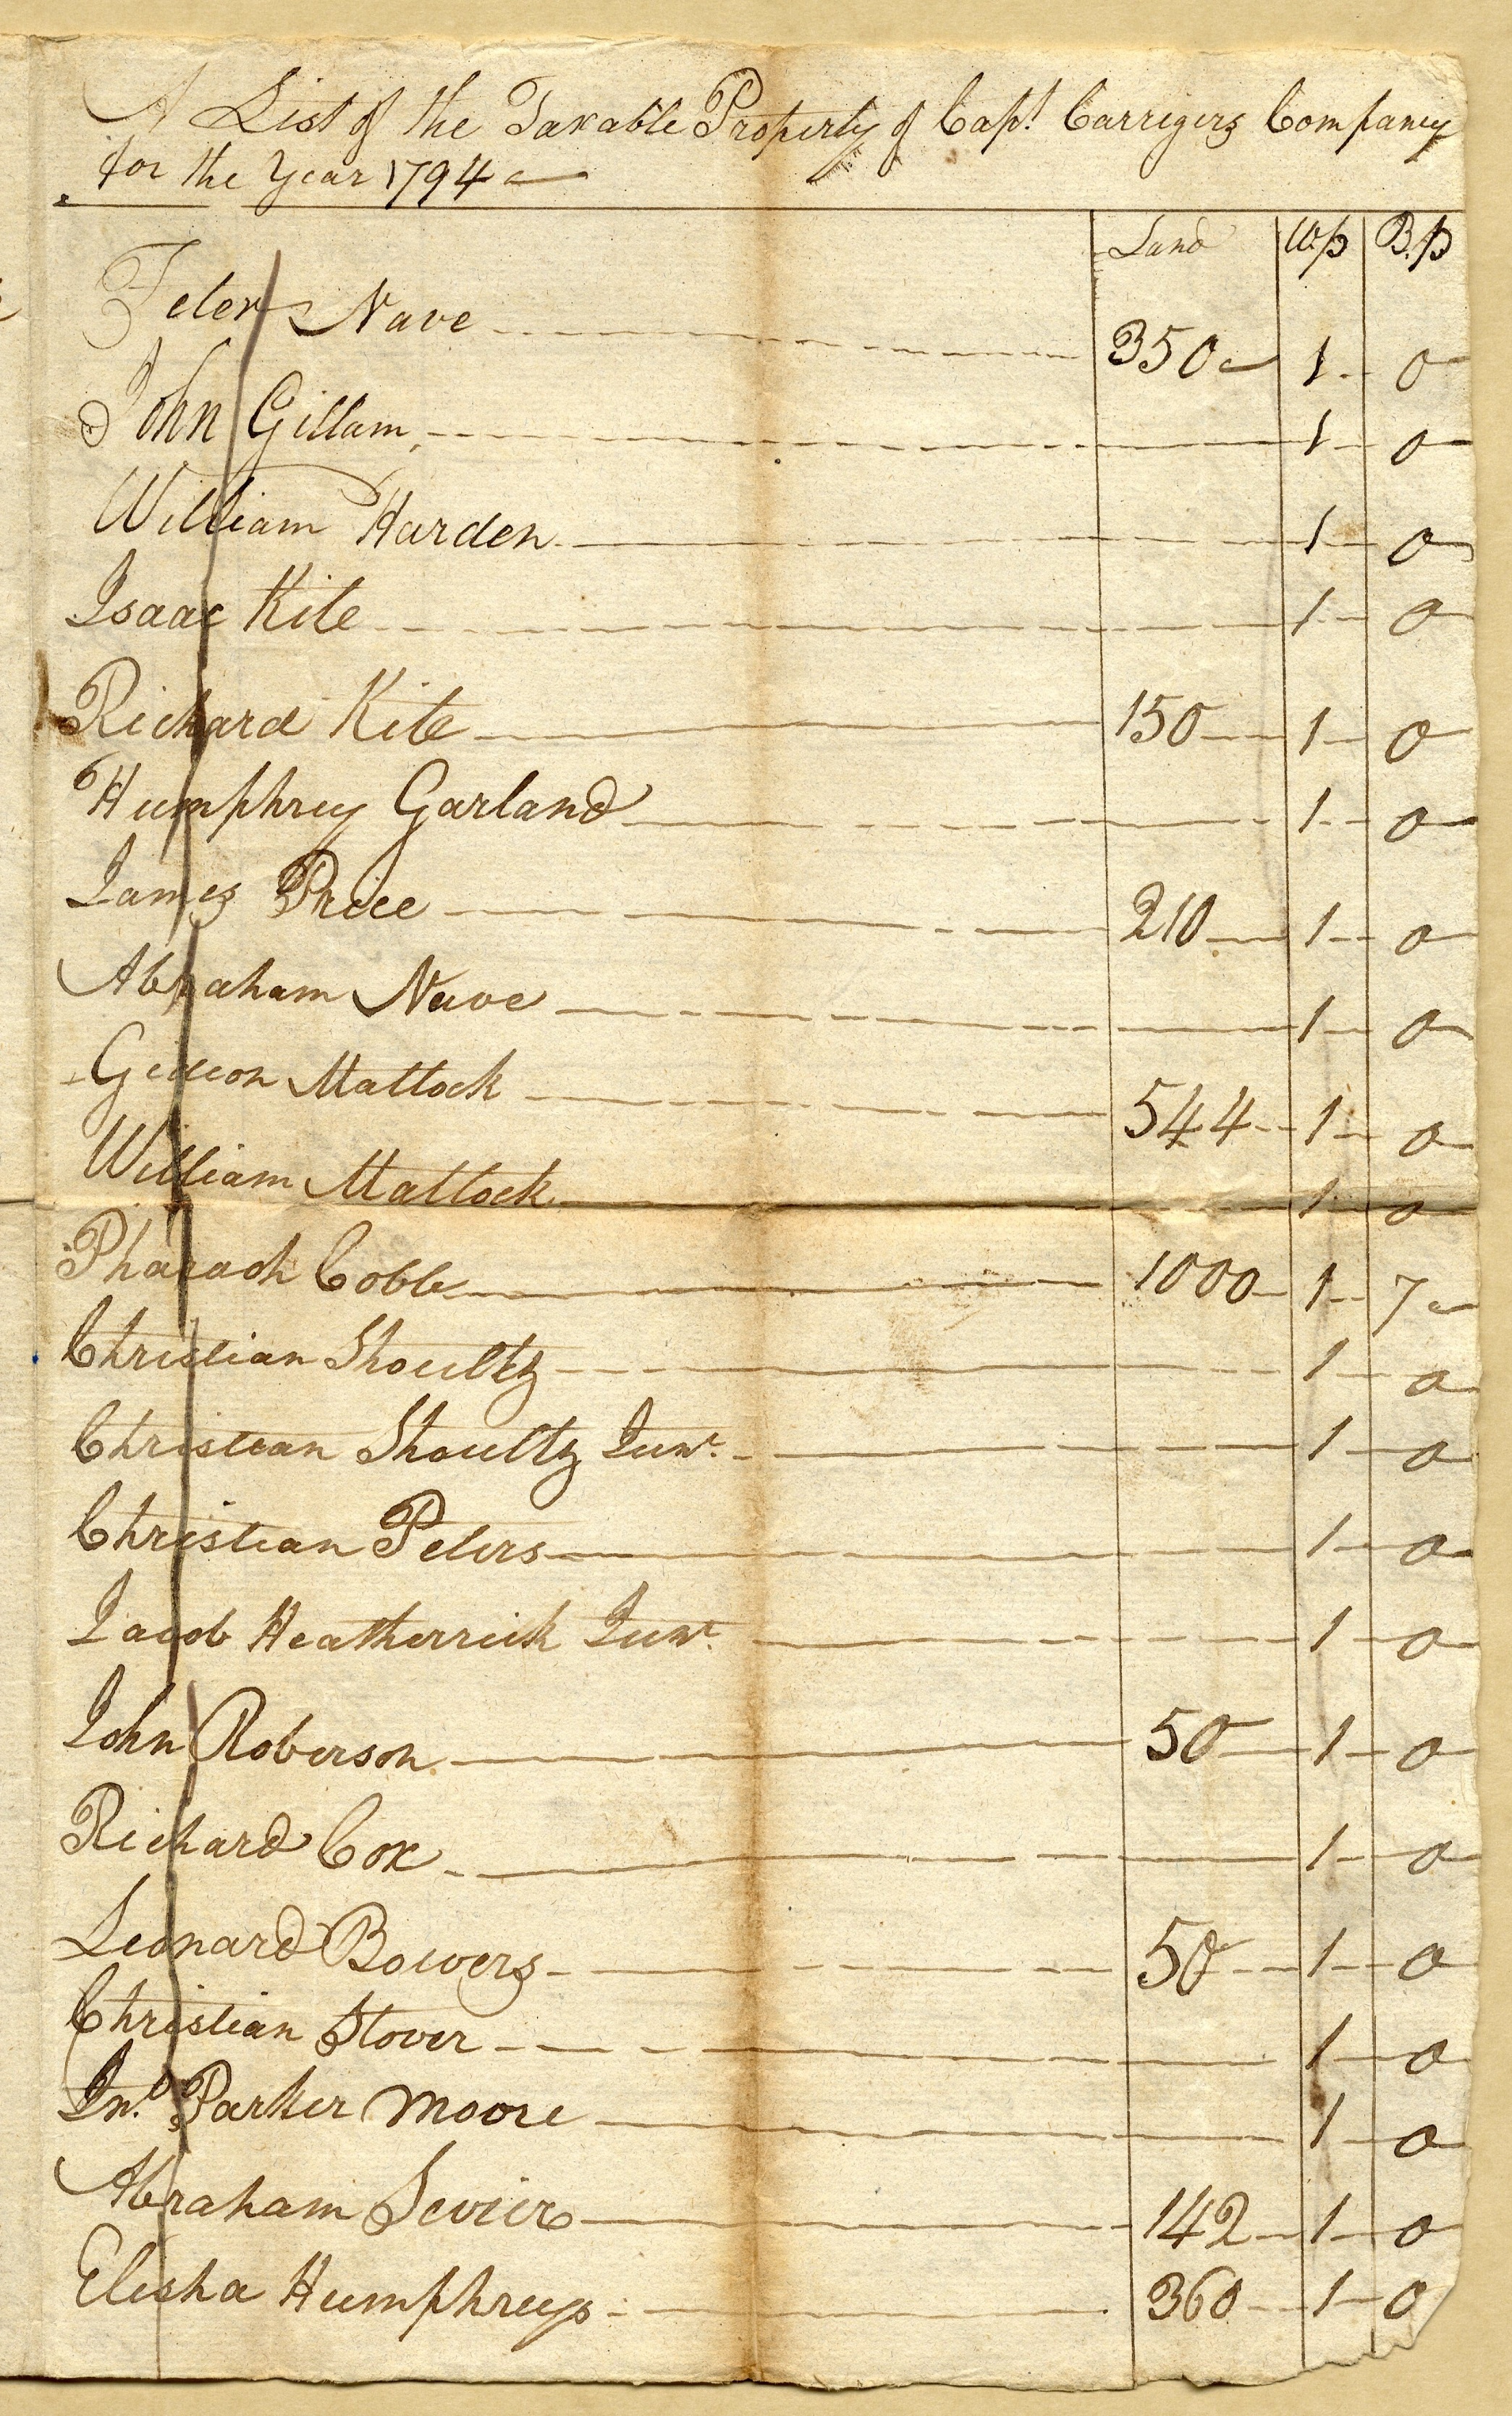 A List of the Taxable Property of Capt. Carrigers Company
for the Year 1794
Land W.p B.p
Teter Nave 350 1 0
John Gillam 1 0
William Harden 1 0
Isaac Kite 1 0
Richard Kite 150 1 0
Humphrey Garland 1 0
James Price 210 1 0
Abraham Nave 1 0
Gideon Mattock 544 1 0
William Mattock 1 0
Pharaoh Cobb 1000 1 7
Christian Shoultz 1 0
Christian Shoultz Junr. 1 0
Christian Peters 1 0
Jacob Heatherrick Junr. 1 0
John Roberson 50 1 0
Richard Cox 1 0
Leonard Bowers 50 1 0
Christian Stover 1 0
Jno. Parker Moore 1 0
Abraham Sevier 142 1 0
Elisha Humphreys 360 1 0